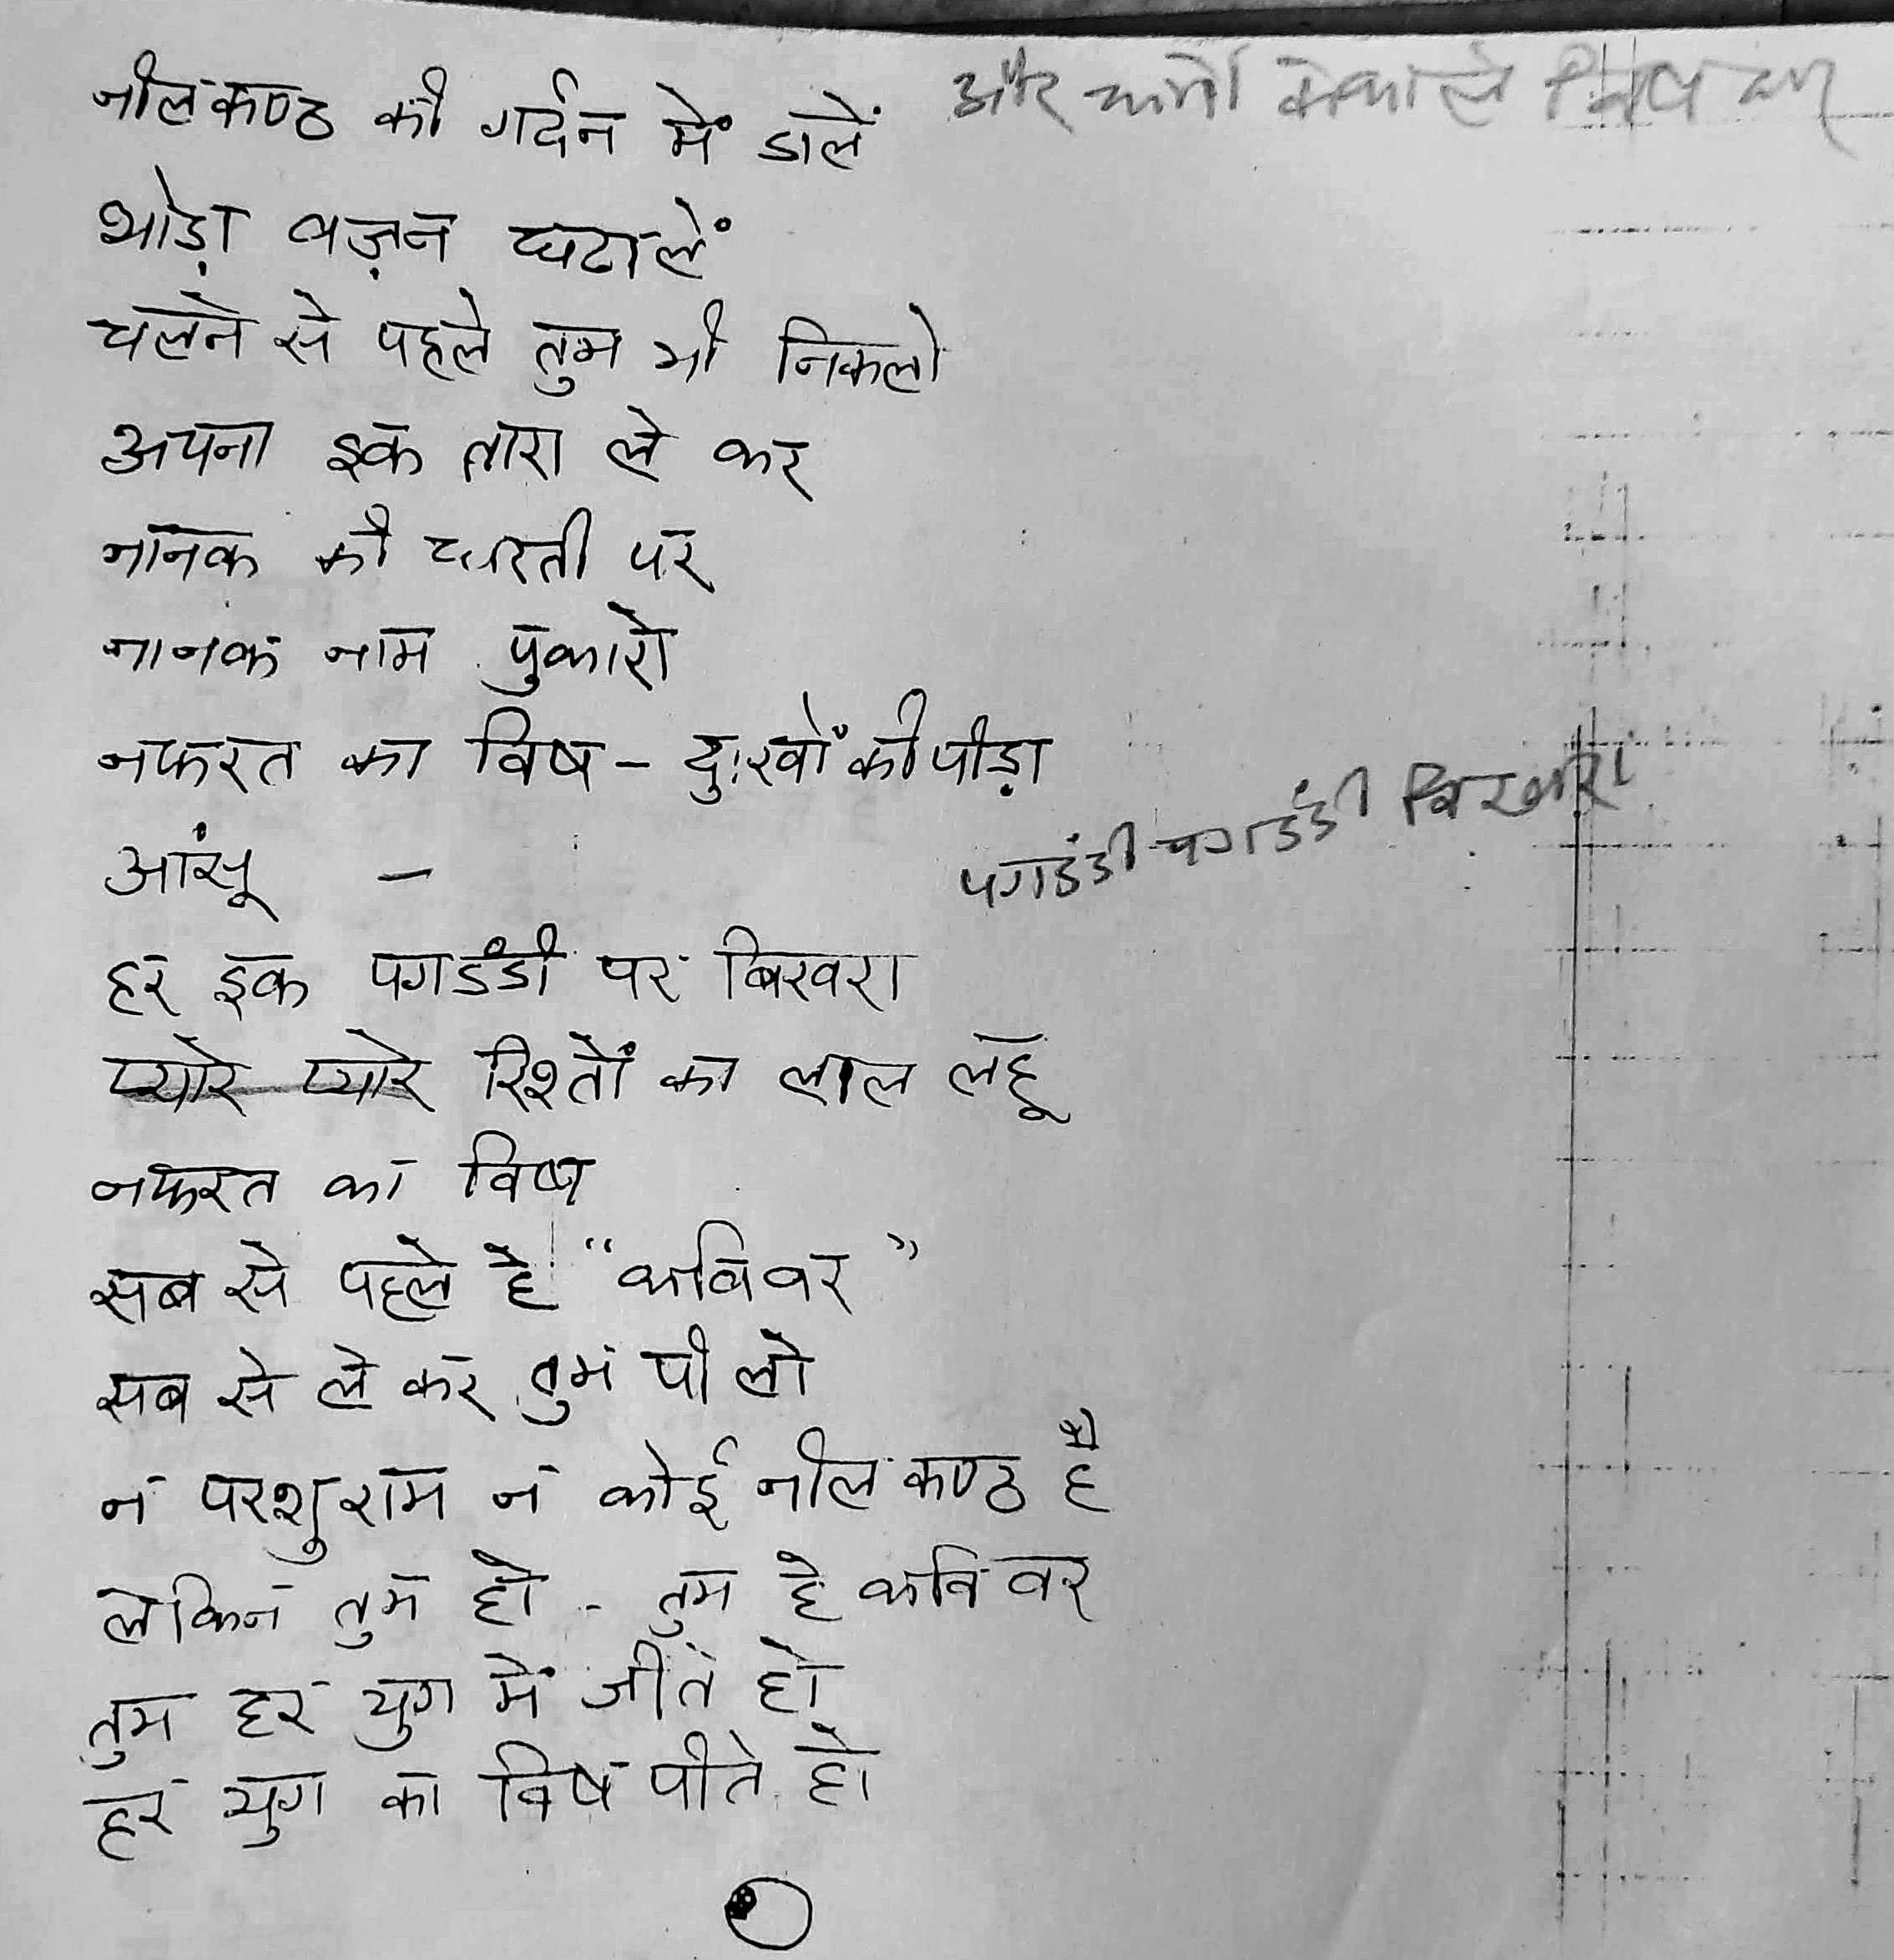 नीलकण्ठ की गर्दन में डालें
और
थोड़ा वज़न घटालें
चलने से पहले तुम भी निकलो
अपना इक तारा ले कर
नानक की धरती पर
नानक नाम पुकारो
नफरत का विष - दुःखों की पीड़ा
आंसू -
पगडंडी-पगडंडी बिखरा
हर इक पगडंडी पर बिखरा
प्यारे प्यारे रिश्तों का लाल लहू
नफरत का विष
सब से पहले हे "कविवर"
सब से ले कर तुम पी लो
न परशुराम न कोई नील कण्ठ है
लेकिन तुम हो - तुम हे कविवर
तुम हर युग में जीते हो
हर युग का विष पीते हो